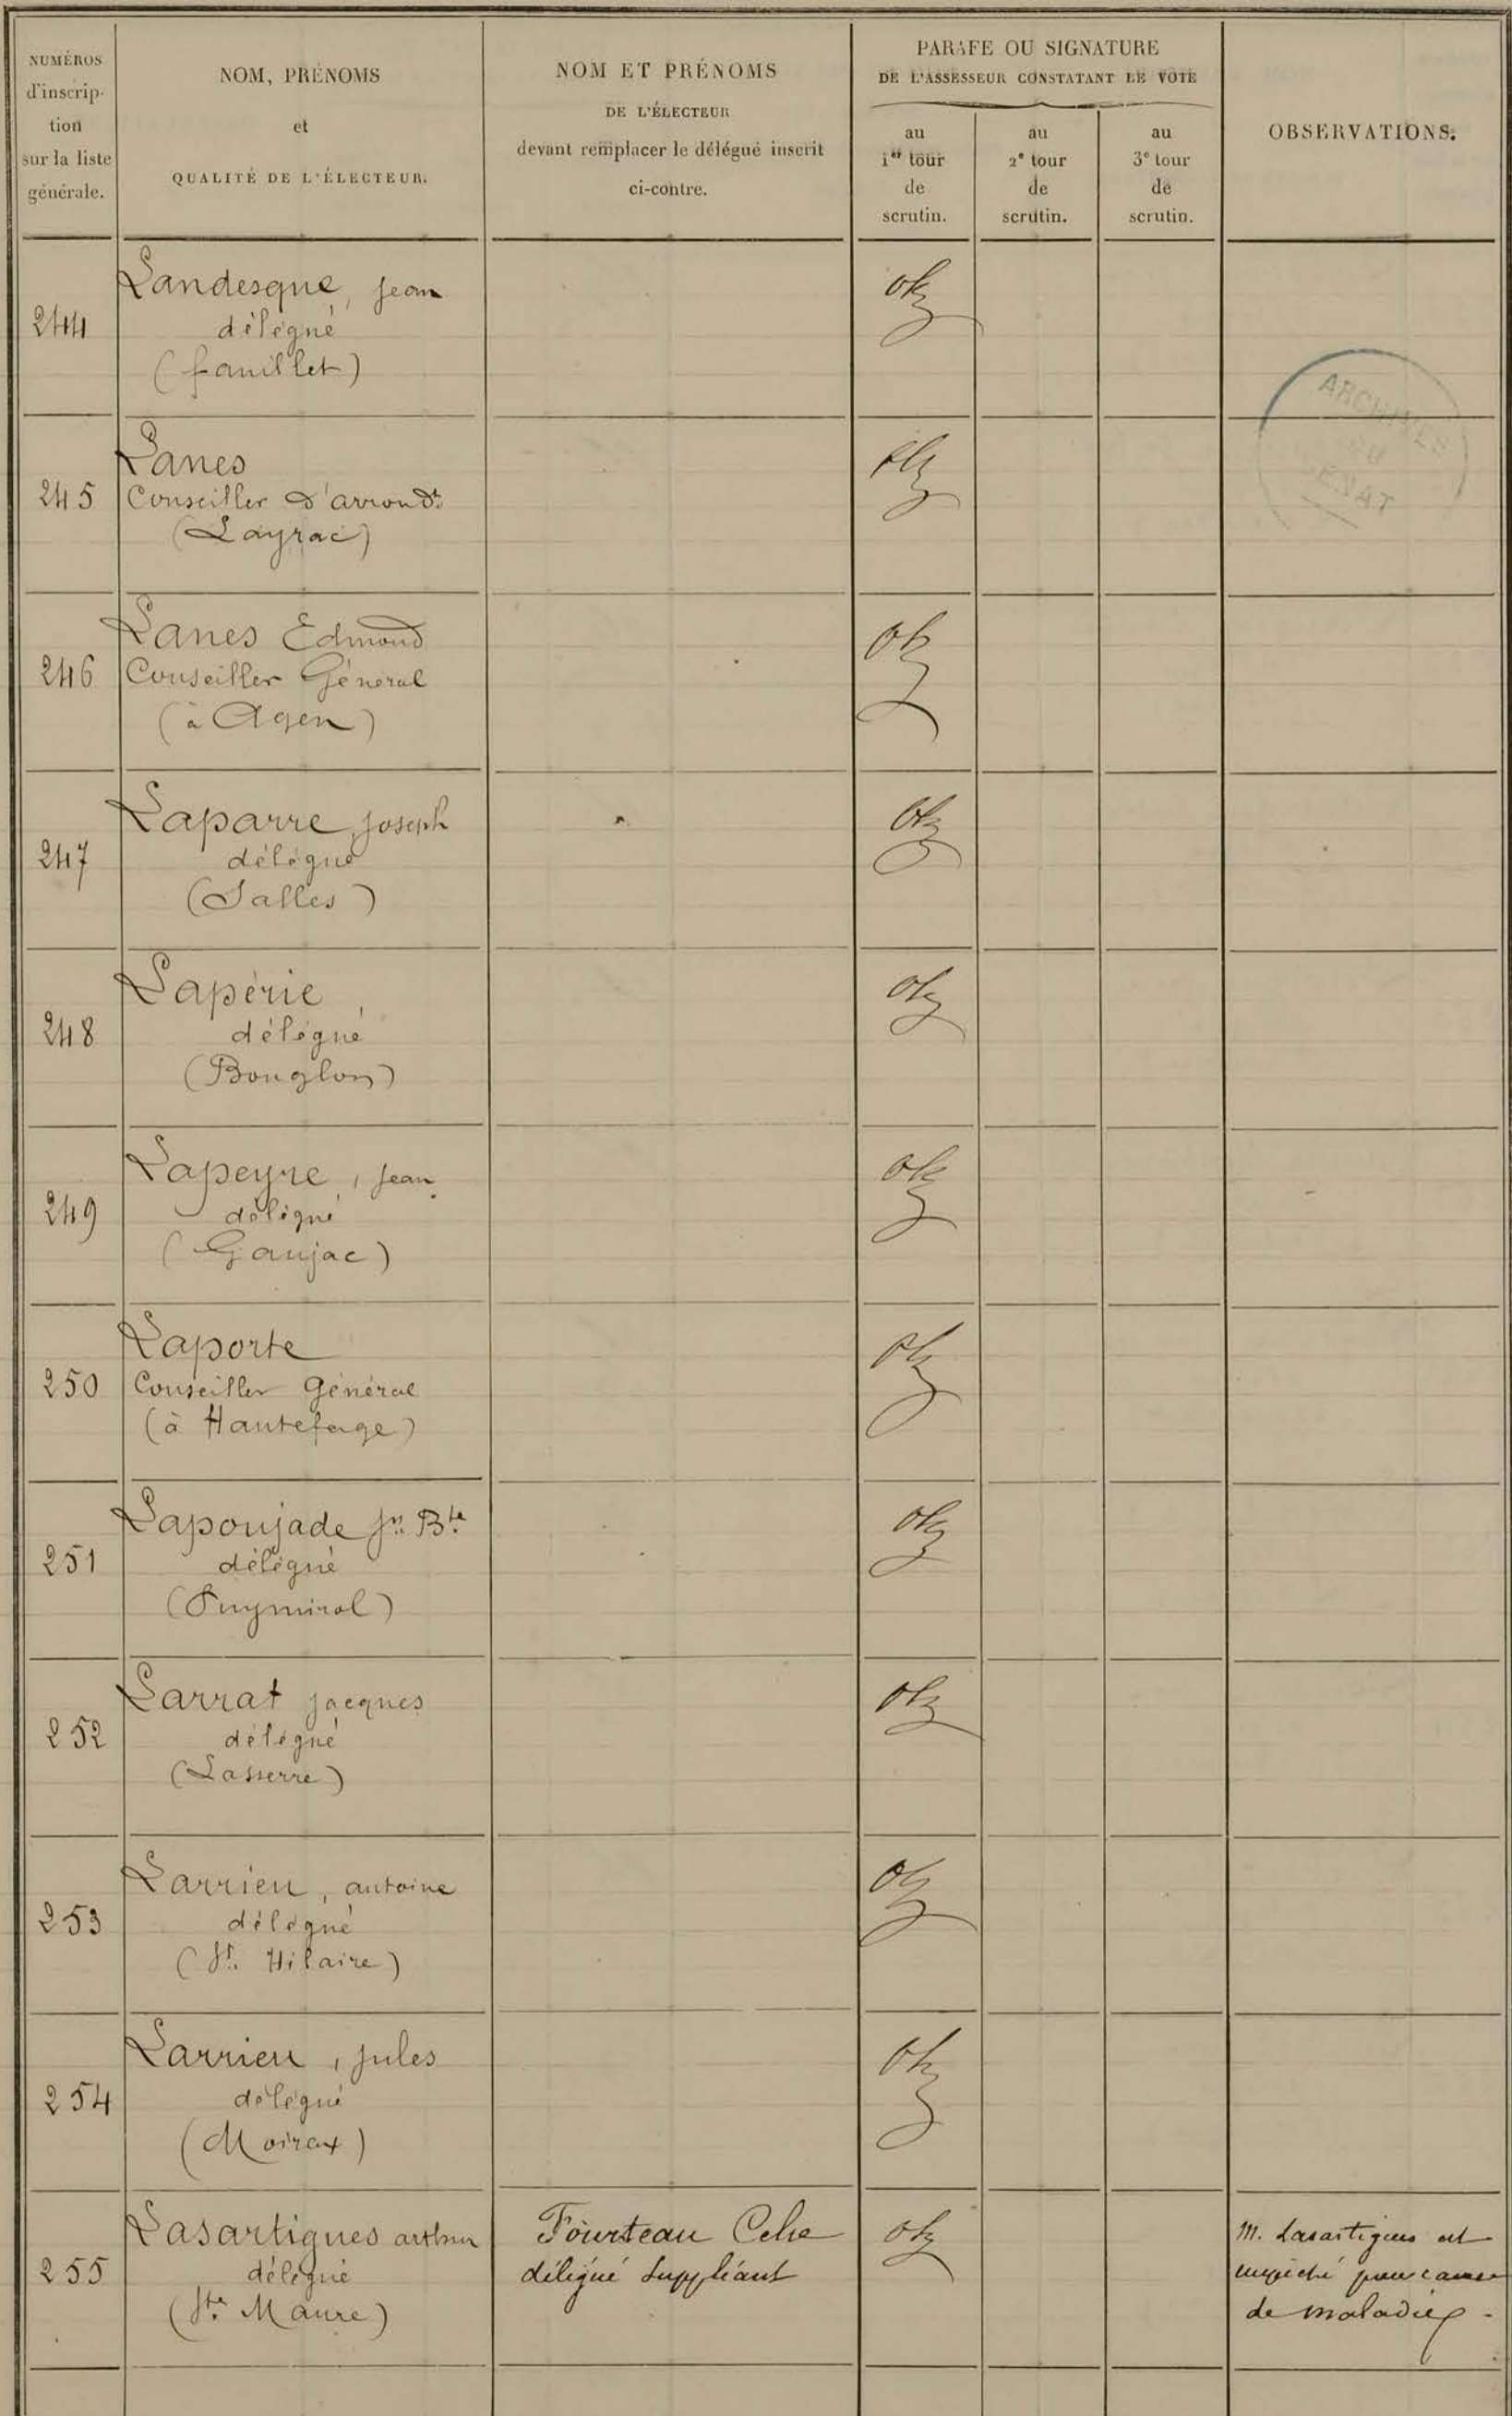 NUMÉROS
d'inscrip-
tion
sur la liste
générale.
NOM, PRÉNOMS
et
QUALITÉ DE L'ÉLECTEUR.
NOM ET PRÉNOMS
DE L'ÉLECTEUR
devant remplacer le délégué inscrit
ci-contre.
PARAFE OU SIGNATURE
DE L'ASSESSEUR CONSTATANT LE VOTE
au
1er tour
de
scrutin.
au
2e tour
de
scrutin.
au
3e tour
de
scrutin.
OBSERVATIONS.
244
Landesque, Jean
délégué
(fauillet)
ARCHIVES
DU
SÉNAT
245
Lanes
Conseiller d'arrondt
(Layrac)
246
Lanes Edmond
Conseiller Général
(à Agen)
247
Laparre, Joseph
délégué
(Salles)
248
Lapérie,
délégué
(Bouglon)
249
Lapeyre, Jean
délégué
(Gaujac)
250
Laporte
Conseiller Général
(à Hautefage)
251
Lapoujade Jn Bte
délégué
(Puymirol)
252
Larrat Jacques
délégué
(Lasserre)
253
Larrieu, antoine
délégué
(St. Hilaire)
254
Larrieu, Jules
délégué
(Moirax)
255
Lasartigues arthur
délégué
(Ste Maure)
Fourteau
délégué Suppléant
M. Lasartigues est
empêché pour cause
de maladie.